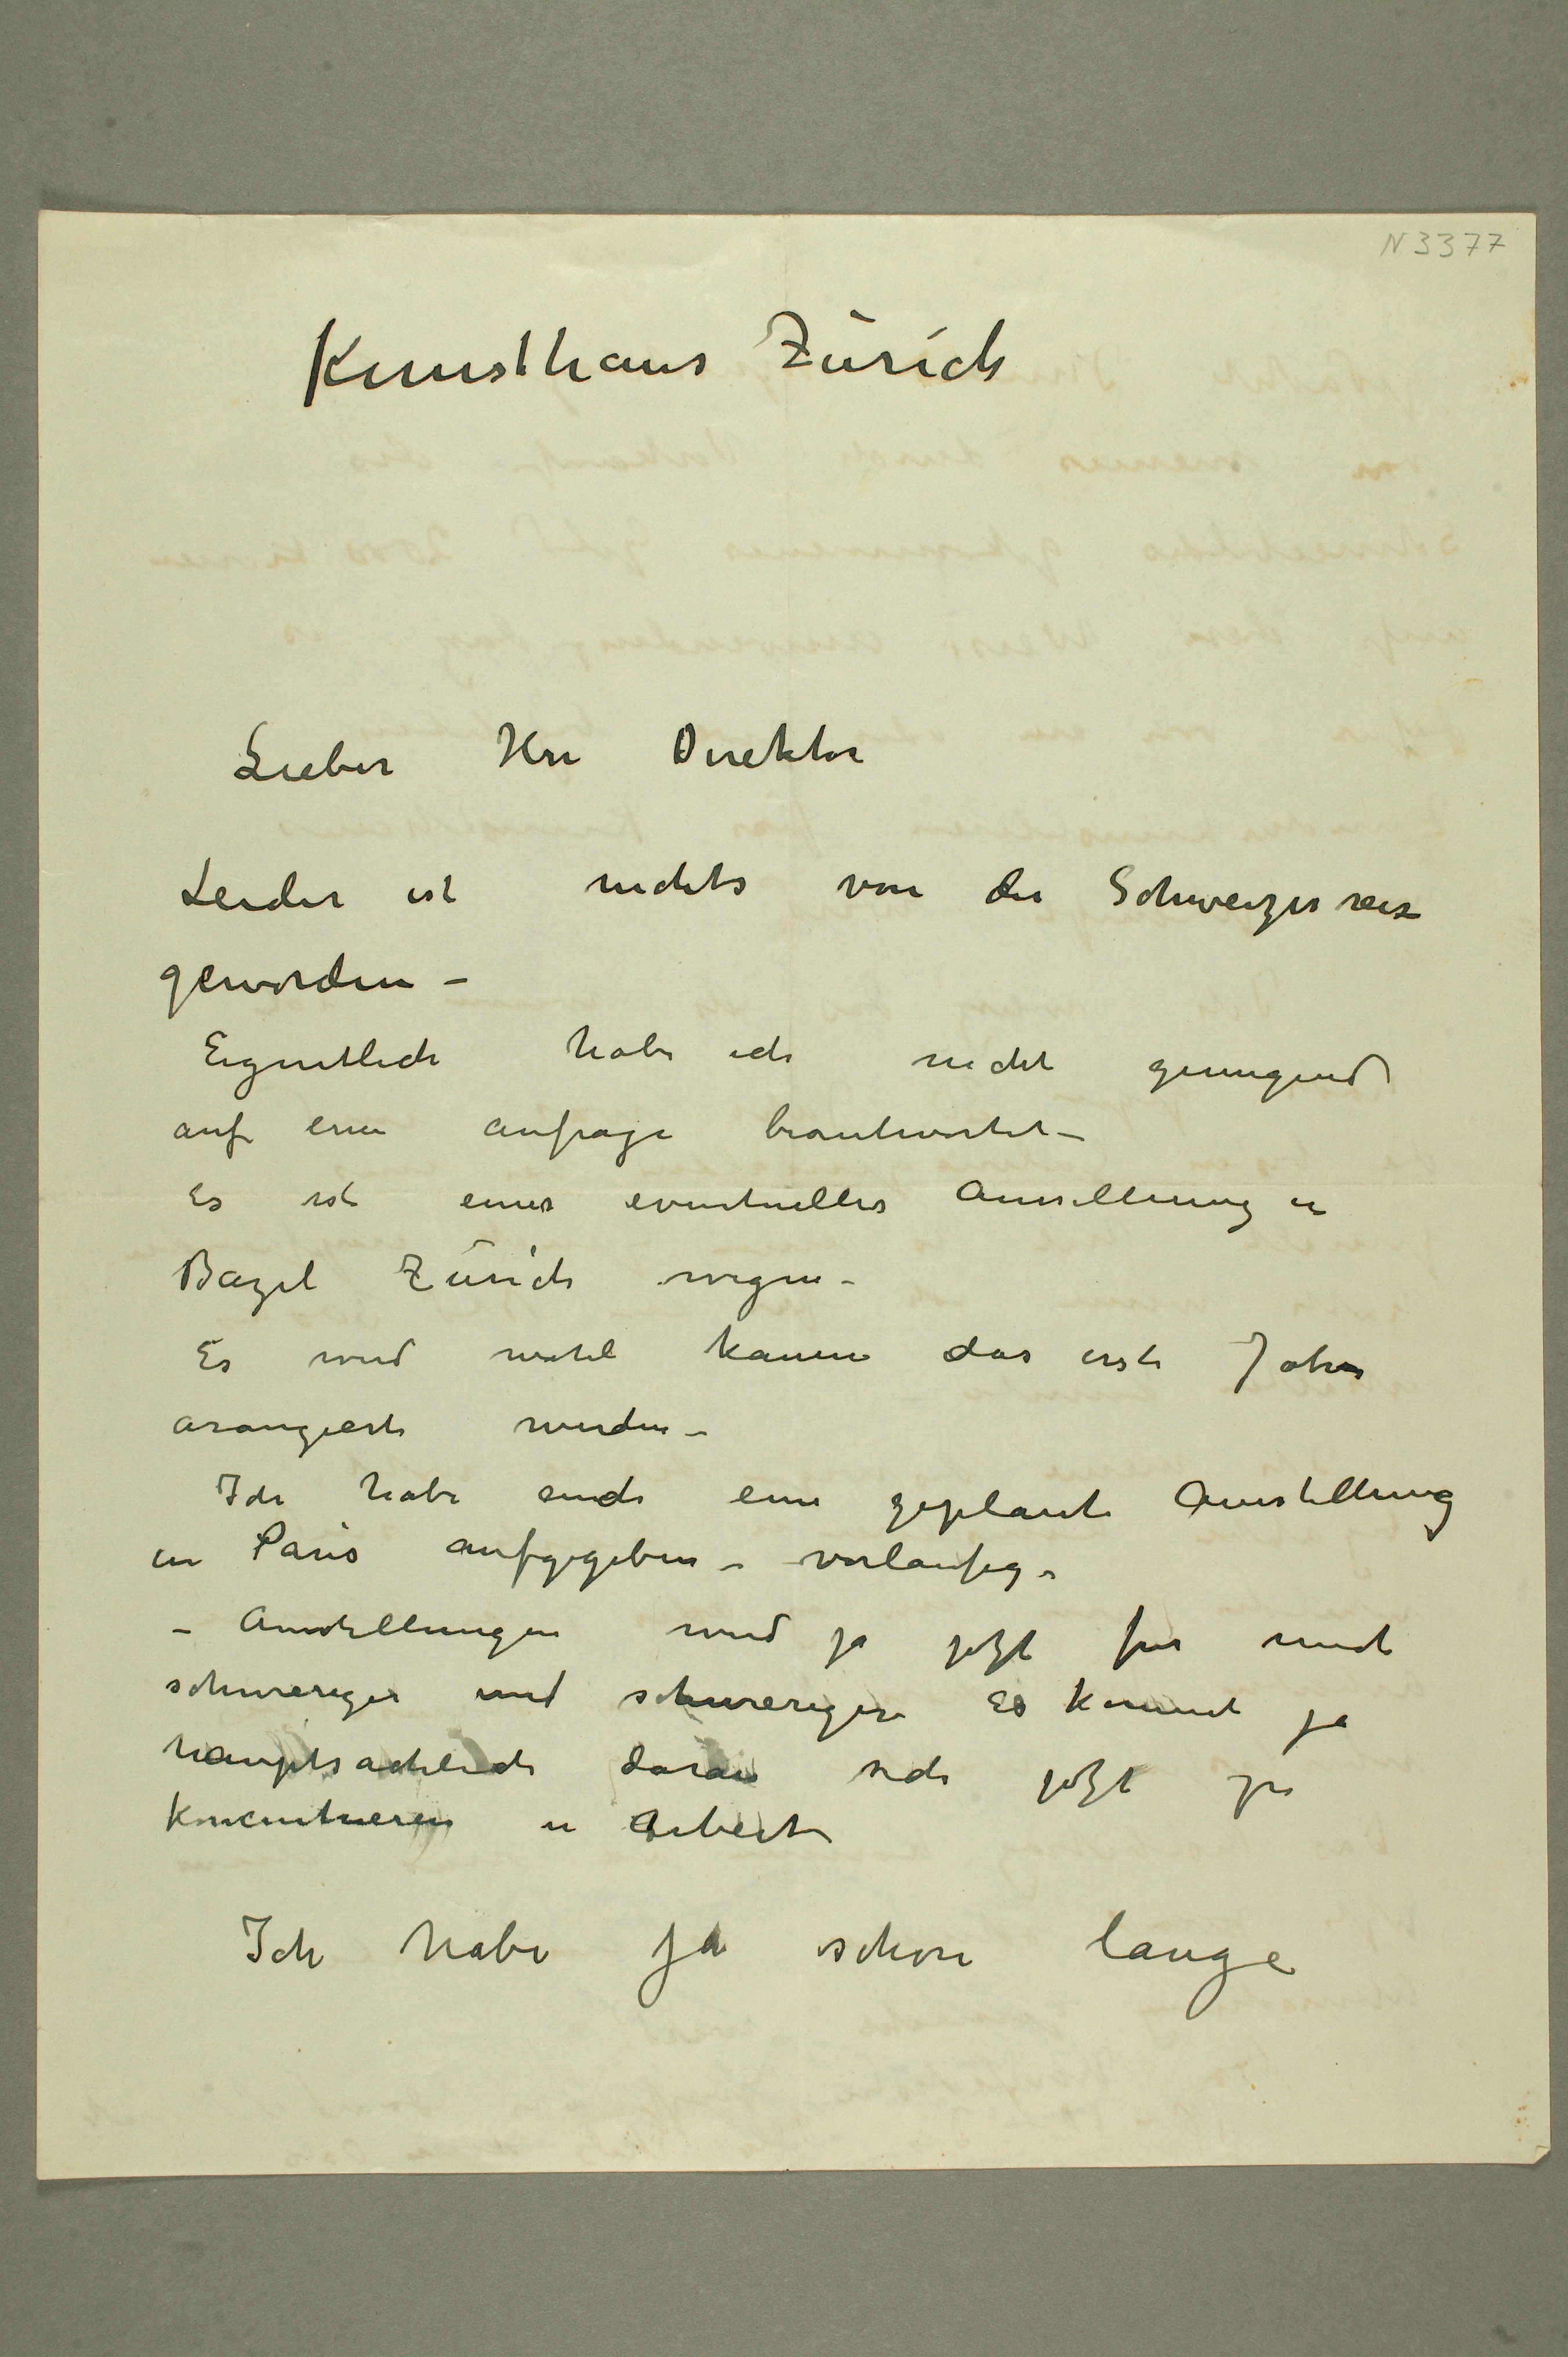 N 3377
Kunsthaus Zürich
Lieber Herr Direktor
Leider ist nichts von der Schweizerreise
geworden –
Eigentlich habe ich nicht genugend
auf eine Anfrage beantwortet –
Es ist einer eventueller Ausstellung in
Bazel Zürich wegen –
Es wird wohl kaum das erste Jahr
arangiert werden –
Ich habe auch eine geplante Ausstellung
in Paris aufgegeben – vorlaufig –
– Ausstellungen wird ja jetzt fur mich
schwieriger und schwieriger Es kommt ja
hauptsachlich daran sich jetzt zu
koncentrieren in Arbeit
Ich habe ja schon lange